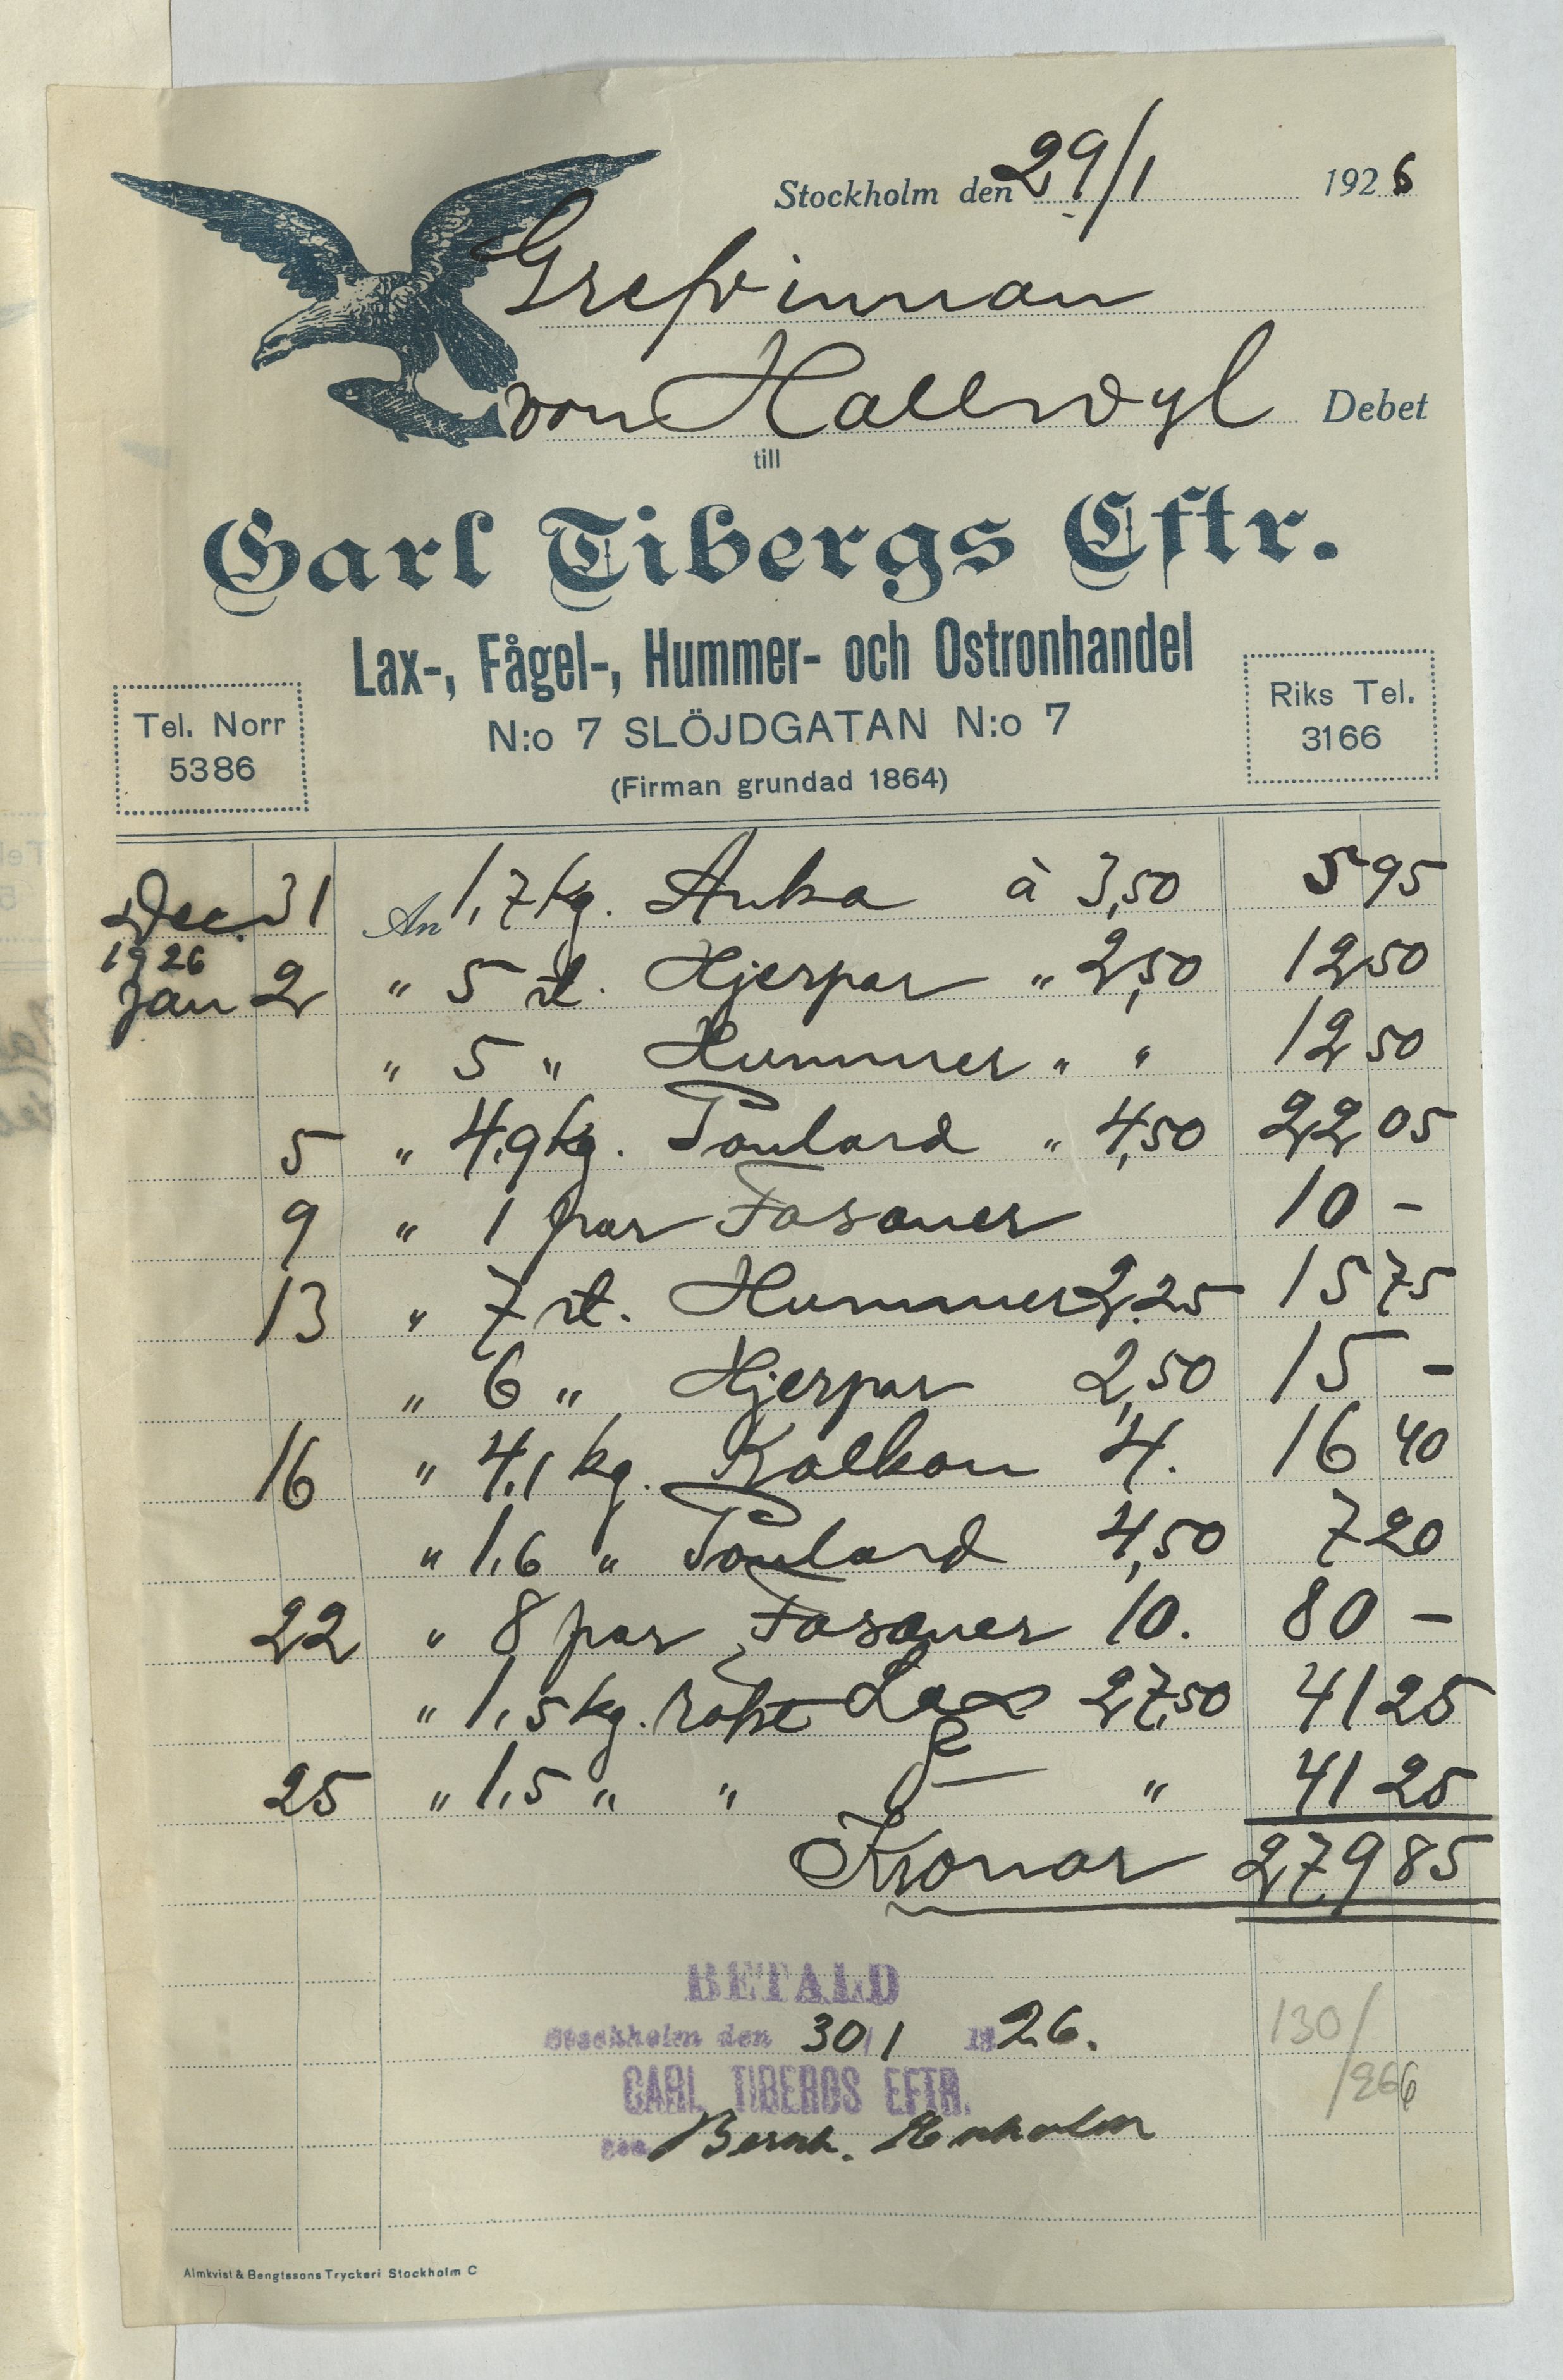 Stockholm den 29/1 1926
Grefvinnan
von Hallwyl Debet
till
Carl Tibergs Eftr.
Lax-, Fågel-, Hummer- och Ostronhandel
Tel. Norr
5386
N:o 7 SLÖJDGATAN N:o 7
(Firman grundad 1864)
Riks Tel.
3166
Dec. 31 An 1,7 kg. Anka à 3,50 5 95
1926
Jan 2 " 5 st. Hjerpar " 2,50 12 50
" 5 " Hummer " " 12 50
5 " 4,9 kg. Poulard " 4,50 22 05
9 " 1 par Fasaner 10 -
13 " 7 st. Hummer 2,25 15 75
" 6 " Hjerpar 2,50 15 -
16 " 4,1 kg. Kalkon 4. 16 40
" 1,6 " Poulard 4,50 7 20
22 " 8 par Fasaner 10. 80 -
" 1,5 kg. rökt Lax 27,50 41 25
25 " 1,5 " " " 41 25
Kronor 279 85
BETALD
Stockholm den 30/1 1926.
CARL TIBERGS EFTR.
Bernh.
130/
266
Almkvist & Bengtssons Tryckeri Stockholm C